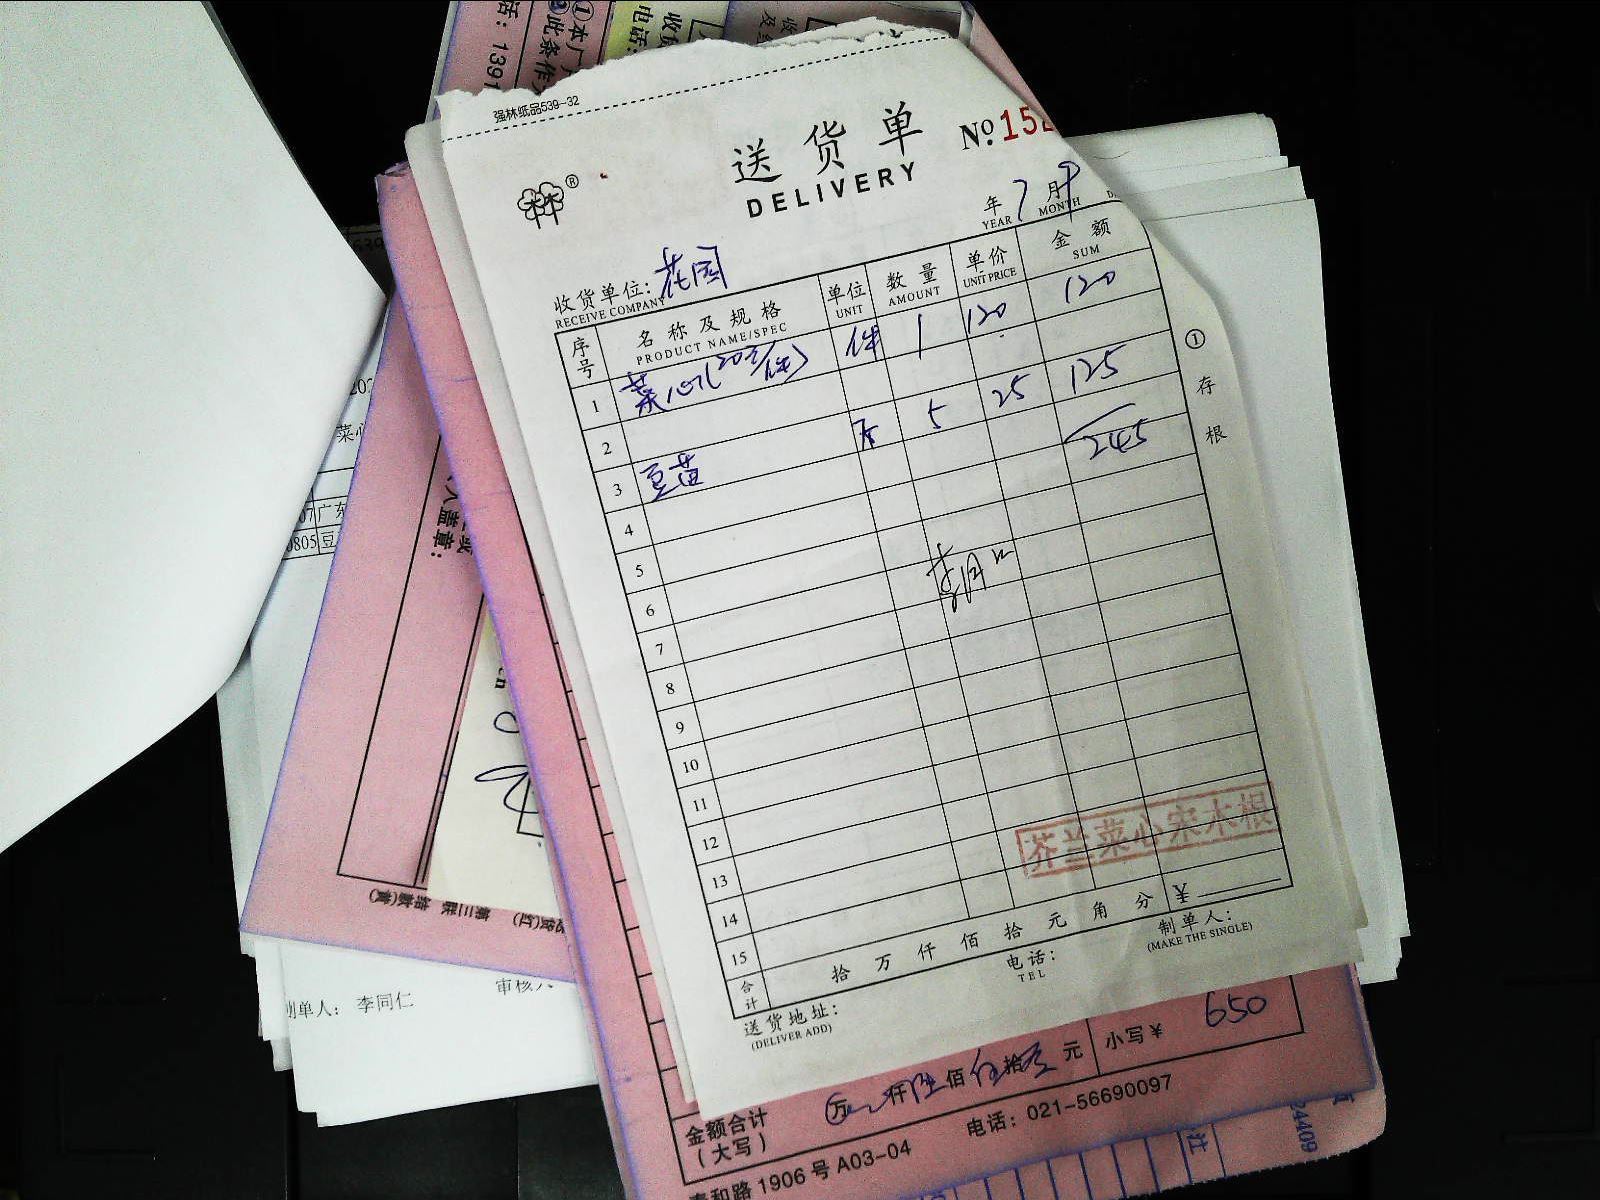 强林纸品539-32
送货单 No.152
DELIVERY
年 7 月 9
YEAR MONTH
收货单位: 花园
RECEIVE COMPANY
序号 名称及规格 单位 数量 单价 金额
PRODUCT NAME/SPEC UNIT AMOUNT UNIT PRICE SUM
1 菜心(20元/件) 件 1 120 120
2
3 豆苗 斤 5 25 125
245
4
5
6
7
8
9
10
11
12
13
14
15
①存根
芥兰菜心宋木根
合计 拾 万 仟 佰 拾 元 角 分 ¥
送货地址: 电话: 制单人:
(DELIVER ADD) TEL (MAKE THE SINGLE)
金额合计 万 仟 佰 拾 元 小写¥ 650
(大写)
路1906号A03-04 电话: 021-56690097
24409
制单人: 李同仁
审核人
广东
0805 豆
菜心
入盖章:
第三联
话: 1391
①本厂
②此条作
电话: